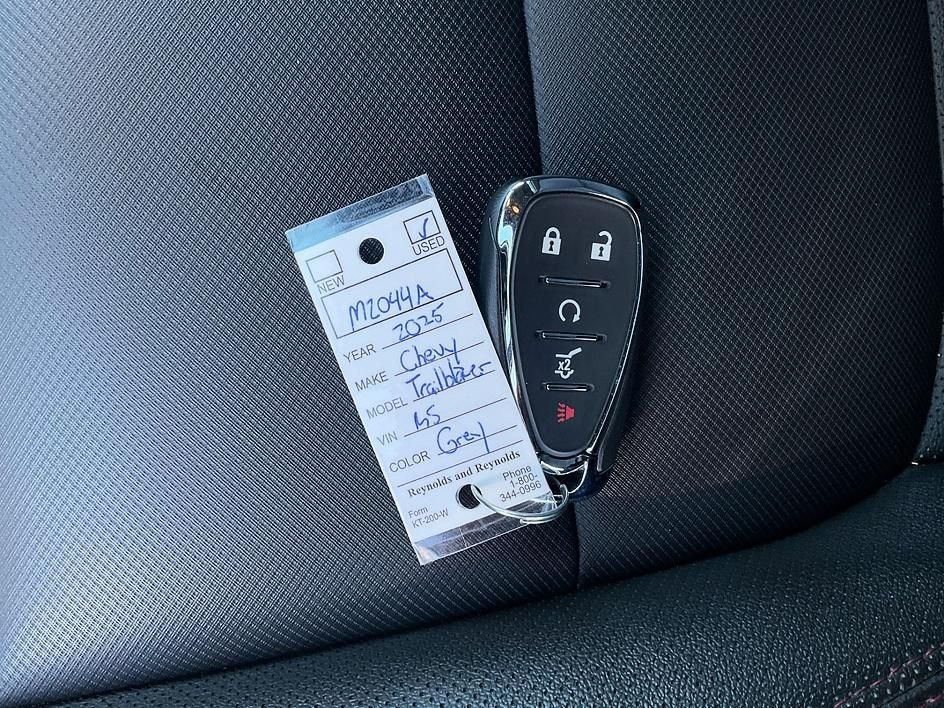 NEW
USED
M2044A
YEAR 2025
MAKE Chevy
MODEL Trailblazer
VIN RS
COLOR Grey
Reynolds and Reynolds
Form
KT-200-W
Phone
1-800-
344-0996
x2